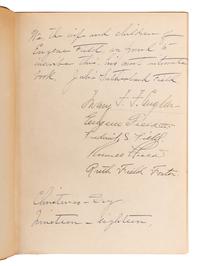 We, the wife and children of
Eugene Field, are proud to
this: his own
book. Julia Sutherland Field
Mary F. F. Englar
Eugene Field
Frederick S. Field
Ruth Field Foster
Christmas-Day
Nineteen-eighteen.